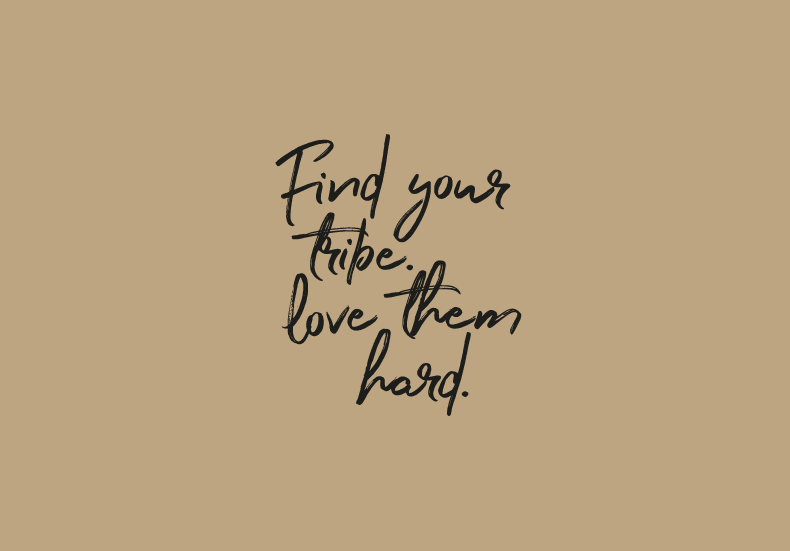 Find your
tribe.
love them
hard.